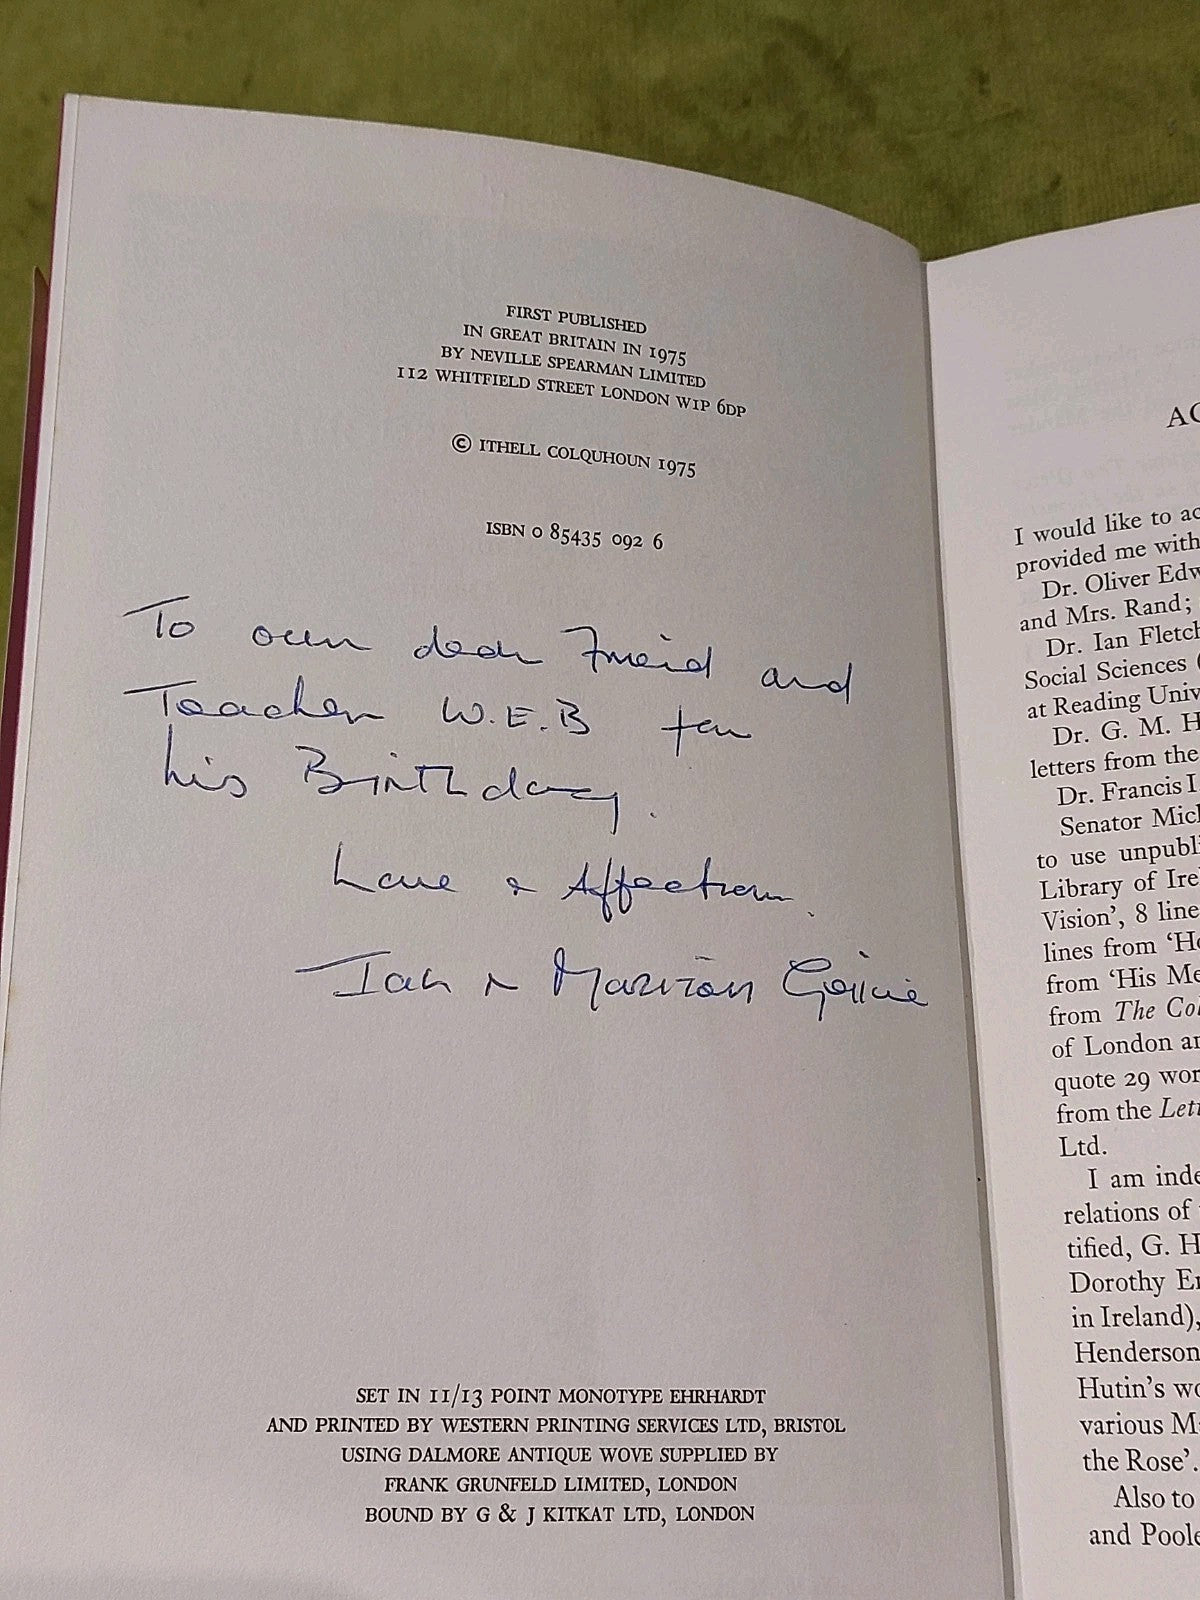 FIRST PUBLISHED
IN GREAT BRITAIN IN 1975
BY NEVILLE SPEARMAN LIMITED
112 WHITFIELD STREET LONDON W1P 6DP
© ITHELL COLQUHOUN 1975
ISBN 0 85435 092 6
To our dear Friend and
Teacher W.E.B for
his Birthday.
Love & Affection.
Ian & Marion
SET IN 11/13 POINT MONOTYPE EHRHARDT
AND PRINTED BY WESTERN PRINTING SERVICES LTD, BRISTOL
USING DALMORE ANTIQUE WOVE SUPPLIED BY
FRANK GRUNFELD LIMITED, LONDON
BOUND BY G & J KITKAT LTD, LONDON
AC
I would like to ac
provided me with
Dr. Oliver Edw
and Mrs. Rand;
Dr. Ian Fletch
Social Sciences (
at Reading Univ
Dr. G. M. H
letters from the
Dr. Francis I
Senator Mich
to use unpubli
Library of Irel
Vision’, 8 line
lines from ‘Ho
from ‘His Me
from The Col
of London an
quote 29 wor
from the Lett
Ltd.
I am inde
relations of
tified, G. H
Dorothy Er
in Ireland),
Henderson
Hutin’s wo
various M
the Rose’.
Also to
and Poole